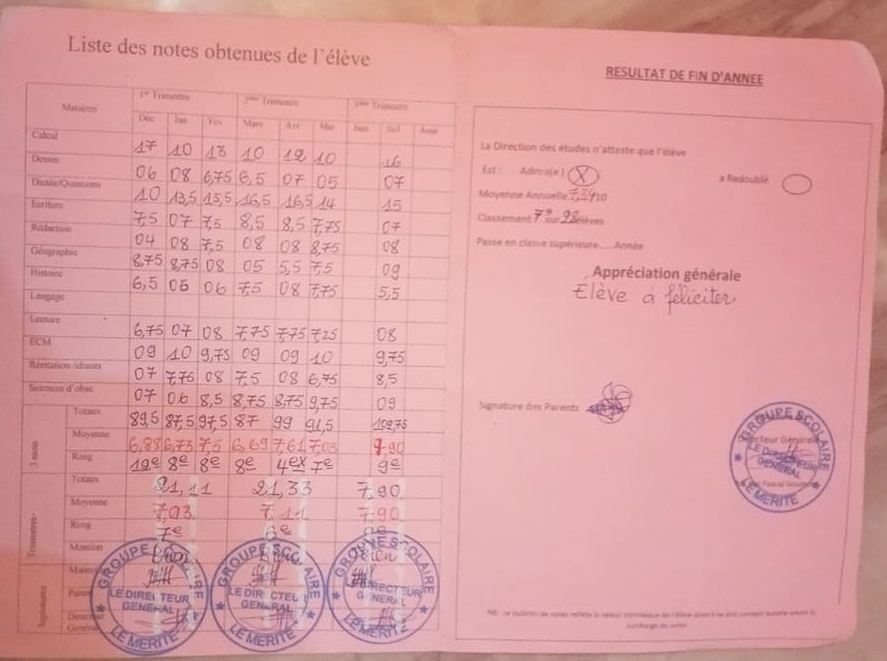 Liste des notes obtenues de l'élève
Matières 1er Trimestre 2ème Trimestre 3ème Trimestre
Déc Jan Fév Mars Avr Mai Juin Juil Aout
Calcul 17 10 13 10 12 10 16
Dessin 06 08 6,75 6,5 07 05 07
Dictée/Questions 10 13,5 15,5 16,5 16,5 14 15
Ecriture 7,5 07 7,5 8,5 8,5 7,75 07
Rédaction 04 08 7,5 08 08 8,75 08
Géographie 8,75 8,75 08 05 5,5 7,5 09
Histoire 6,5 05 06 7,5 08 7,75 5,5
Langage
Lecture 6,75 07 08 7,75 7,75 7,25 08
ECM 09 10 9,75 09 09 10 9,75
Récitation /chants 07 7,75 08 7,5 08 6,75 8,5
Sciences d'obsc 07 06 8,5 8,75 8,75 9,75 09
Totaux 89,5 87,5 97,5 87 99 91,5 102,75
Moyenne 6,88 6,73 7,5 6,69 7,61 7,03 7,90
Rang 12e 8e 8e 8e 4ex 7e 9e
Totaux 21,11 21,33 7,90
Moyenne 7,03 7,11 7,90
Rang 7e 6e
Mention Bien
Parents
Directeur Général
Signatures
GROUPE SCOLAIRE
LE DIRECTEUR
GENERAL
LE MERITE
GROUPE SCOLAIRE
LE DIRECTEUR
GENERAL
LE MERITE
GROUPE SCOLAIRE
DIRECTEUR
GENERAL
LE MERITE
RESULTAT DE FIN D'ANNEE
La Direction des études n'atteste que l'élève
Est : Admis(e) X a Redoublé
Moyenne Annuelle 7,34/10
Classement 7e sur 28 élèves
Passe en classe supérieure.....Année
Appréciation générale
Elève à féliciter
Signature des Parents
Directeur Général
GROUPE SCOLAIRE
LE DIRECTEUR
GENERAL
LE MERITE